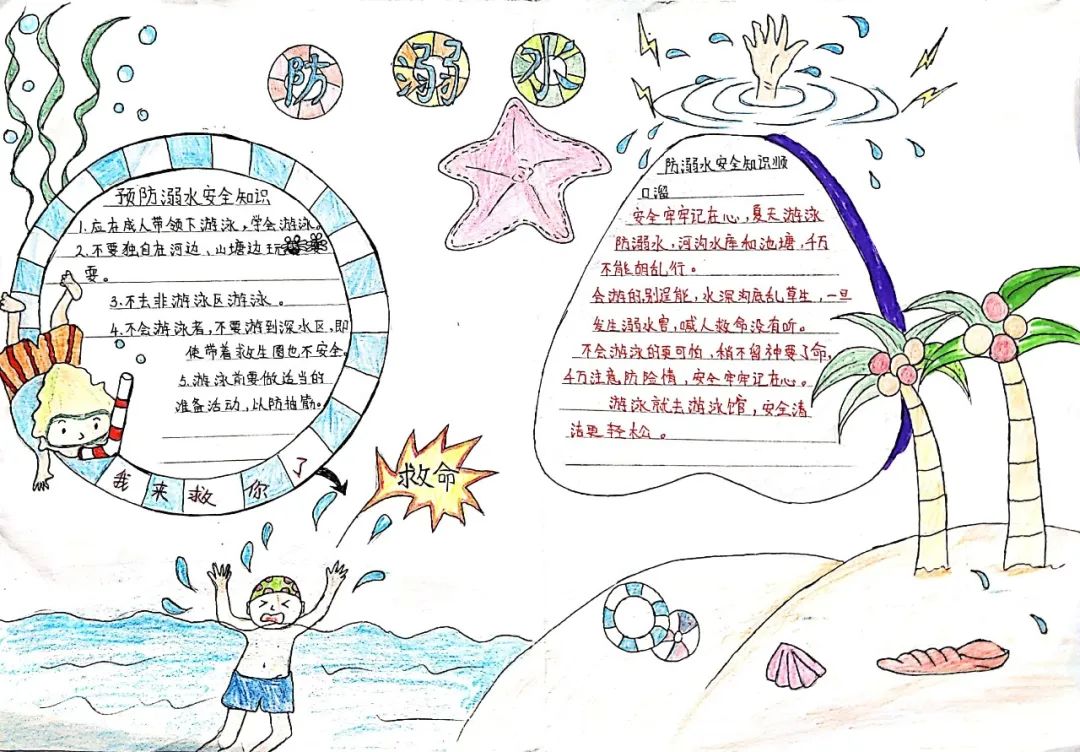 防溺水
预防溺水安全知识
1.应在成人带领下游泳，学会游泳。
2.不要独自在河边、山塘边玩
耍。
3.不去非游泳区游泳。
4.不会游泳者，不要游到深水区，即
使带着救生圈也不安全。
5.游泳前要做适当的
准备活动，以防抽筋。
我来救你了
救命
防溺水安全知识顺
口溜
安全牢牢记在心，夏天游泳
防溺水，河沟水库和池塘，千万
不能胡乱行。
会游的别逞能，水深沟底乱草生，一旦
发生溺水害，喊人救命没有听。
不会游泳的更可怕，稍不留神要了命，
千万注意防险情，安全牢牢记在心。
游泳就去游泳馆，安全清
洁更轻松。